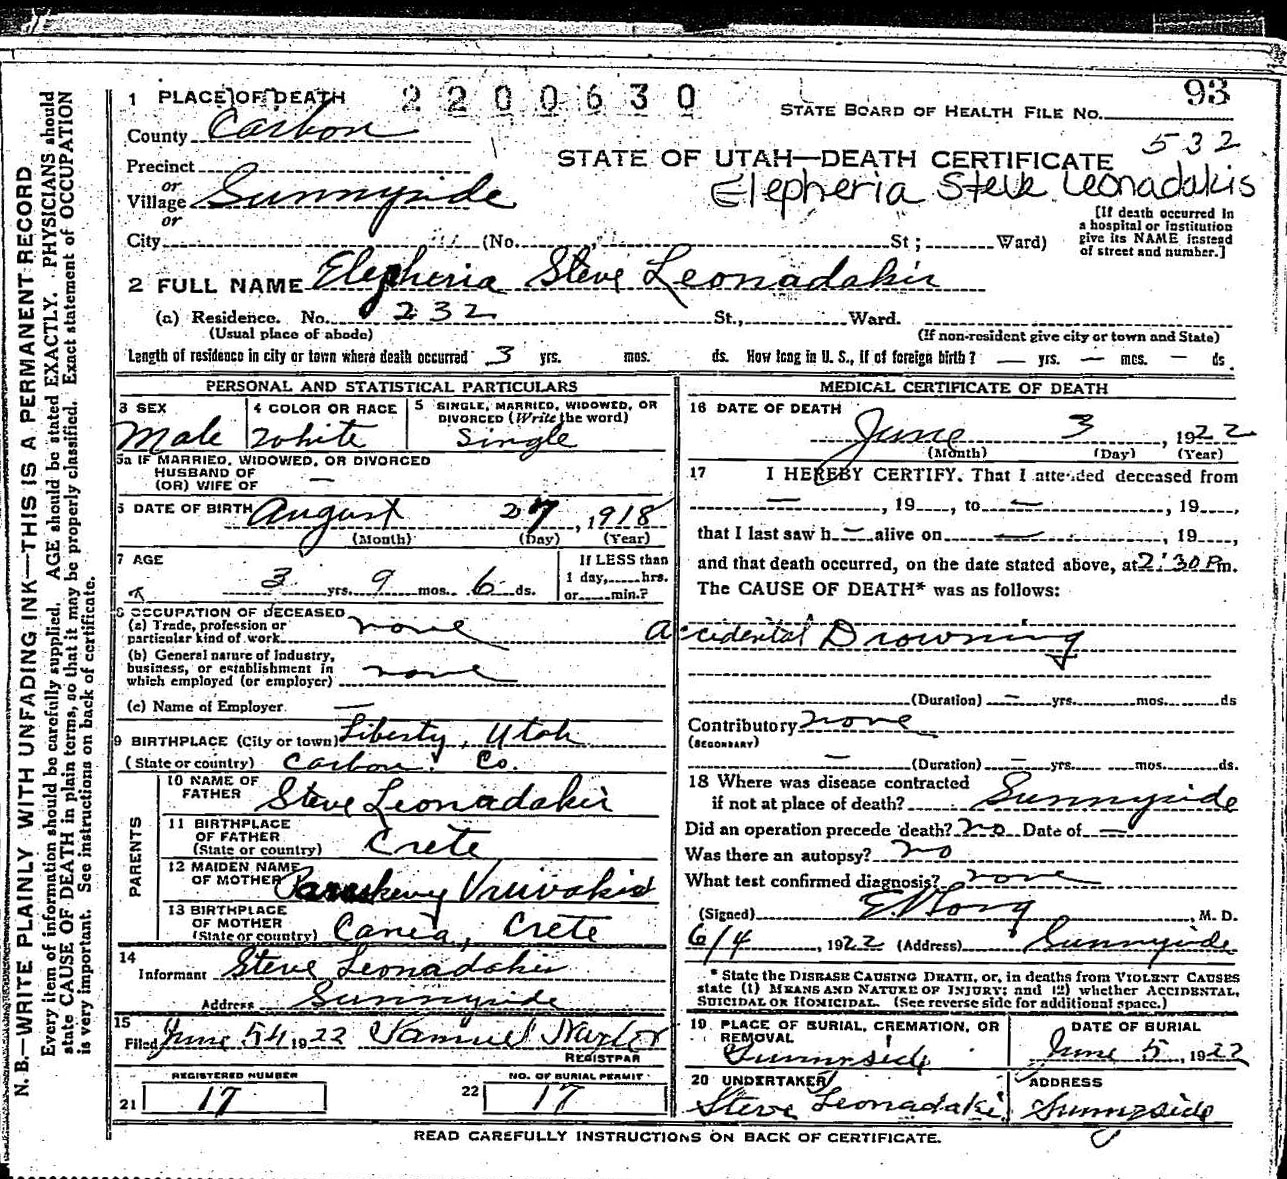 93
1 PLACE OF DEATH 2200630 STATE BOARD OF HEALTH FILE No.
County Carbon 532
Precinct STATE OF UTAH—DEATH CERTIFICATE
or Elepheria Steve Leonadakis
Village Sunnyside
or
[If death occurred in
a hospital or institution
give its NAME instead
of street and number.]
City (No. St; Ward)
2 FULL NAME Elepheria Steve Leonadakis
(a) Residence. No. 232 St., Ward.
(Usual place of abode) (If non-resident give city or town and State)
Length of residence in city or town where death occurred 3 yrs. mos. ds. How long in U. S., if of foreign birth? — yrs. — mos. — ds
PERSONAL AND STATISTICAL PARTICULARS
3 SEX 4 COLOR OR RACE 5 SINGLE, MARRIED, WIDOWED, OR
DIVORCED (Write the word)
Male White Single
5a IF MARRIED, WIDOWED, OR DIVORCED
HUSBAND OF
(OR) WIFE OF —
6 DATE OF BIRTH August 27, 1918
(Month) (Day) (Year)
7 AGE If LESS than
3 yrs. 9 mos. 6 ds. 1 day, hrs.
or min.?
8 OCCUPATION OF DECEASED
(a) Trade, profession or
particular kind of work none
(b) General nature of industry,
business, or establishment in
which employed (or employer) none
(c) Name of Employer —
9 BIRTHPLACE (City or town) Liberty, Utah
(State or country) Carbon Co.
PARENTS
10 NAME OF
FATHER Steve Leonadakis
11 BIRTHPLACE
OF FATHER
(State or country) Crete
12 MAIDEN NAME
OF MOTHER Vruvakis
13 BIRTHPLACE
OF MOTHER
(State or country) Canea, Crete
14
Informant Steve Leonadakis
Address Sunnyside
15
Filed June 1922 Samuel
REGISTRAR
REGISTERED NUMBER NO. OF BURIAL PERMIT
21 17 22 17
MEDICAL CERTIFICATE OF DEATH
16 DATE OF DEATH
June 3, 1922
(Month) (Day) (Year)
17 I HEREBY CERTIFY. That I attended deceased from
—, 19, to —, 19,
that I last saw h — alive on —, 19,
and that death occurred, on the date stated above, at 2:30 Pm.
The CAUSE OF DEATH* was as follows:
Accidental Drowning
(Duration) — yrs. mos. ds
Contributory none
(SECONDARY)
— (Duration) — yrs. mos. ds.
18 Where was disease contracted
if not at place of death? Sunnyside
Did an operation precede death? no Date of —
Was there an autopsy? no
What test confirmed diagnosis? none
(Signed) , M. D.
6/4, 1922 (Address) Sunnyside
* State the DISEASE CAUSING DEATH, or, in deaths from VIOLENT CAUSES
state (1) MEANS AND NATURE OF INJURY; and (2) whether ACCIDENTAL,
SUICIDAL OR HOMICIDAL. (See reverse side for additional space.)
19 PLACE OF BURIAL, CREMATION, OR DATE OF BURIAL
REMOVAL
Sunnyside June 5, 1922
20 UNDERTAKER ADDRESS
Steve Leonadakis Sunnyside
READ CAREFULLY INSTRUCTIONS ON BACK OF CERTIFICATE.
N. B.—WRITE PLAINLY WITH UNFADING INK—THIS IS A PERMANENT RECORD
Every item of information should be carefully supplied. AGE should be stated EXACTLY. PHYSICIANS should
state CAUSE OF DEATH in plain terms, so that it may be properly classified. Exact statement of OCCUPATION
is very important. See instructions on back of certificate.